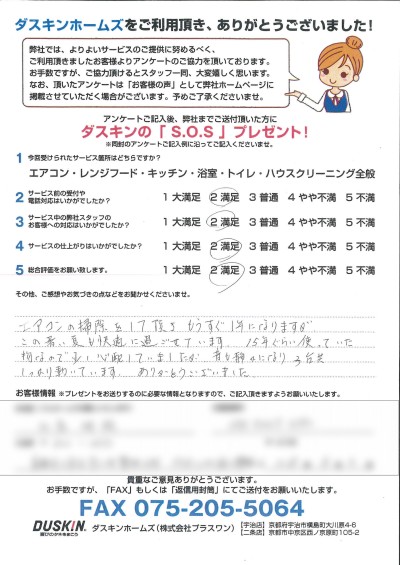 ダスキンホームズをご利用頂き、ありがとうございました!
弊社では、よりよいサービスのご提供に努めるべく、
ご利用頂きましたお客様よりアンケートのご協力を頂いております。
お手数ですが、ご協力頂けるとスタッフ一同、大変嬉しく思います。
なお、頂いたアンケートは「お客様の声」として弊社ホームページに
掲載させていただく場合がございます。予めご了承くださいませ。
アンケートご記入後、弊社までご送付頂いた方に
ダスキンの「 S.O.S 」プレゼント!
※同封のアンケートご記入例に沿ってご記入くださいませ。
1 今回受けられたサービス箇所はどちらですか?
エアコン・レンジフード・キッチン・浴室・トイレ・ハウスクリーニング全般
2 サービス前の受付や電話対応はいかがでしたか? 1 大満足 2 満足 3 普通 4 やや不満 5 不満
3 サービス中の弊社スタッフのお客様への対応はいかがでしたか? 1 大満足 2 満足 3 普通 4 やや不満 5 不満
4 サービスの仕上がりはいかがでしたか? 1 大満足 2 満足 3 普通 4 やや不満 5 不満
5 総合評価をお願い致します。 1 大満足 2 満足 3 普通 4 やや不満 5 不満
その他、ご感想やお気づきの点などをお聞かせくださいませ。
エアコンの掃除をして頂き もうすぐ1年になりますが
この暑い夏も快適に過ごせています。15年ぐらい使っていた
ので 心配していましたが 3台共
しっかり動いています。ありがとうございました。
お客様情報 ※プレゼントをお送りするのに必要な情報となりますので、ご記入頂けますようお願いいたします。
貴重なご意見ありがとうございます。
お手数ですが、「FAX」もしくは「返信用封筒」にてご送付をお願いいたします。
FAX 075-205-5064
DUSKIN 喜びのタネをまこう ダスキンホームズ(株式会社プラスワン) 【宇治店】京都府宇治市槇島町大川原4-6
【二条店】京都市中京区西ノ京原町105